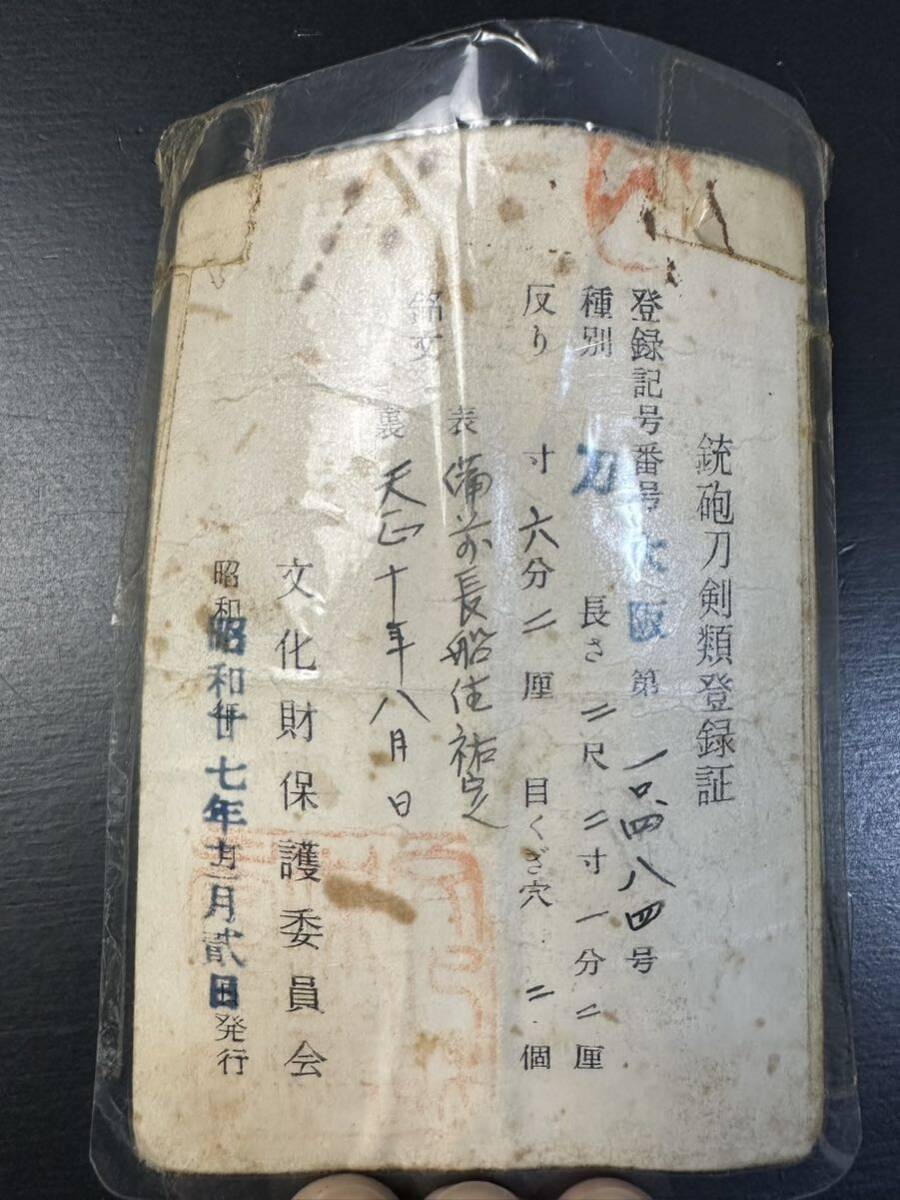 銃砲刀剣類登録証
登録記号番号 大阪 第一〇四八四号
種別 刀 長さ 二尺二寸一分二厘
反り 寸六分二厘 目くぎ穴 二個
銘文 表 備前長船住祐定
裏 天正十年八月日
文化財保護委員会
昭和 昭和廿七年 月貳日発行